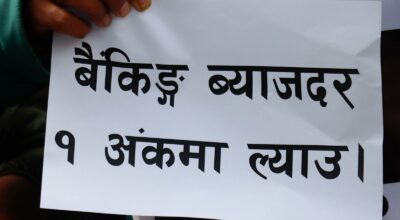 बैंकिङ्ग ब्याजदर
१ अंकमा ल्याउ।